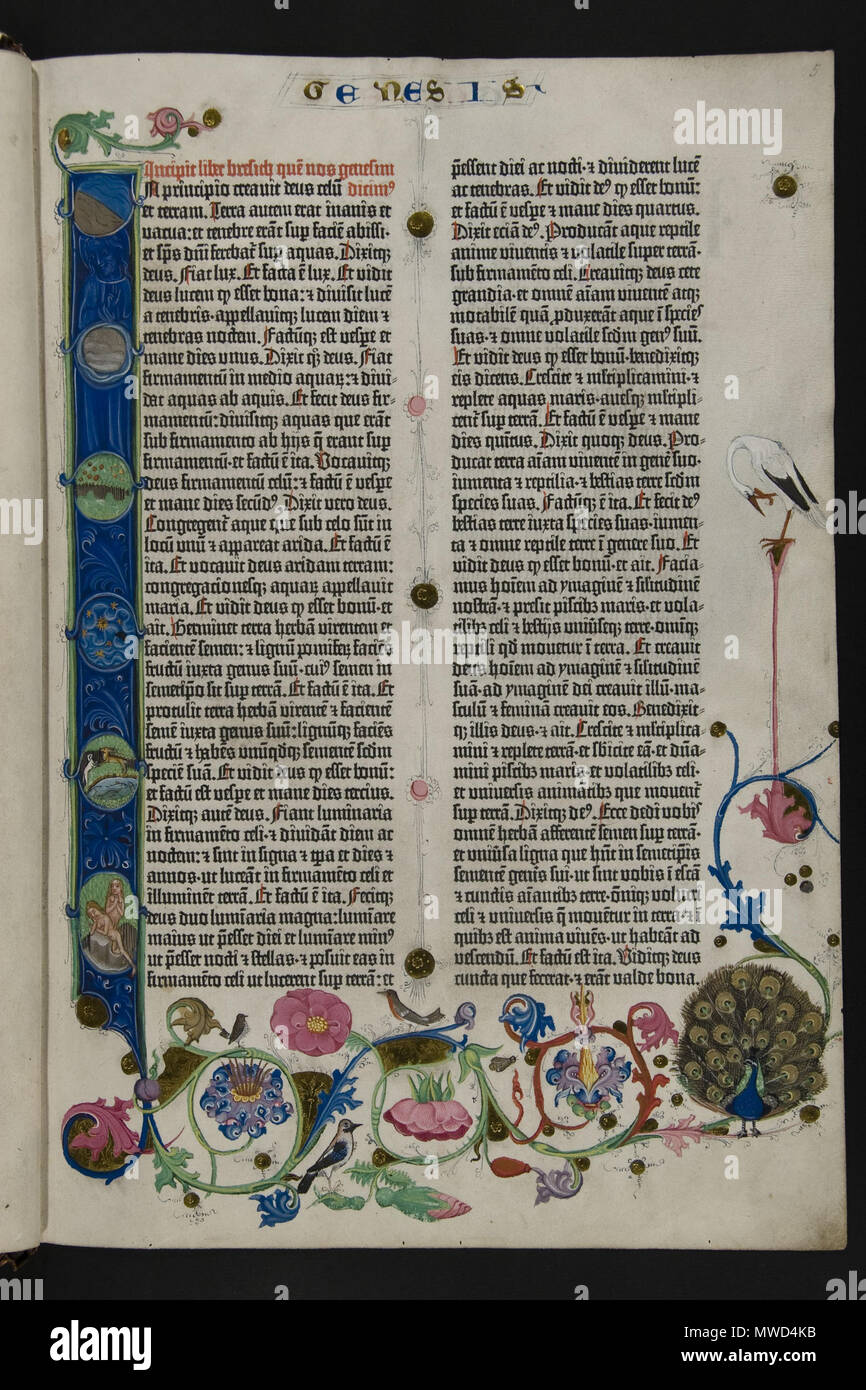 GENESIS
5
Incipit liber bresich quē nos genesim
In principio creavit deus celū dicim⁹
et terram. Terra autem erat inanis et
vacua: et tenebre erāt sup faciē abissi.
et sp̄s dn̄i ferebat͛ sup aquas. Dixitqꝫ
deus. Fiat lux. Et facta ē lux. Et vidit
deus lucem ꝙ esset bona: ⁊ divisit lucē
a tenebris. appellavitqꝫ lucem diem ⁊
tenebras noctem. Factūqꝫ est vespe et
mane dies unus. Dixit qꝫ deus. Fiat
firmamentū in medio aquaꝝ: ⁊ divi-
dat aquas ab aquis. Et fecit deus fir-
mamentū: divisitqꝫ aquas que erāt
sub firmamento ab hijs q̄ erant sup
firmamentū. et factū ē ita. Vocavitqꝫ
deus firmamentū celū: ⁊ factū ē vespe
et mane dies secūd⁹. Dixit vero deus.
Congregent͛ aque que sub celo sūt in
locū unū ⁊ appareat arida. Et factū ē
ita. Et vocavit deus aridam terram:
congregacionesqꝫ aquaꝝ appellavit
maria. Et vidit deus ꝙ esset bonū. et
ait. Germinet terra herbā virentem et
facientē semen: ⁊ lignū pomifeꝝ faciēs
fructū iuxta genus suū. cui⁹ semen in
semetipso sit sup terrā. Et factū ē ita. Et
protulit terra herbā virentē ⁊ facientē
semē iuxta genus suū: lignūqꝫ faciēs
fructū ⁊ habēs unūqdqꝫ sementē scdm
speciē suā. Et vidit deus ꝙ esset bonū:
et factū est vespe et mane dies tercius.
Dixitqꝫ autē deus. Fiant luminaria
in firmamēto celi. ⁊ dividāt diem ac
noctem: ⁊ sint in signa ⁊ tp̄a et dies ⁊
annos. ut luceāt in firmamēto celi et
illuminent terrā. Et factū ē ita. Fecitqꝫ
deus duo luminaria magna: lumīare
maius ut p̄esset diei et lumīare min⁹
ut p̄esset nocti ⁊ stellas. ⁊ posuit eas in
firmamēto celi ut lucerent sup terrā: et
p̄essent diei ac nocti. ⁊ dividerent lucē
ac tenebras. Et vidit de⁹ ꝙ esset bonū:
et factū ē vespe ⁊ mane dies quartus.
Dixit eciā de⁹. Producāt aque reptile
anime viventis ⁊ volatile super terrā.
sub firmamēto celi. Creavitqꝫ deus cete
grandia. et omnē aīam viventē atqꝫ
motabilē quā ꝓduxerāt aque ī species
suas. ⁊ omne volatile scdm gen⁹ suū.
Et vidit deus ꝙ esset bonū. benedixitqꝫ
eis dicens. Crescite ⁊ mltiplicamini. ⁊
replete aquas maris. avesqꝫ mltipli-
cent͛ sup terrā. Et factū ē vespe ⁊ mane
dies quītus. Dixit quoqꝫ deus. Pro-
ducat terra aīam viventē in genē suo.
iumenta ⁊ reptilia. ⁊ bestias terre scdm
species suas. Factūqꝫ ē ita. Et fecit de⁹
bestias terre iuxta species suas. iumen-
ta ⁊ omne reptile terre ī genere suo. Et
vidit deus ꝙ esset bonū. et ait. Facia-
mus hoīem ad ymaginē ⁊ silitudinē
nostrā. ⁊ presit piscibꝫ maris. et vola-
tilibꝫ celi ⁊ bestijs uniūseqꝫ terre. omīqꝫ
reptili qd movetur ī terra. Et creavit
deus hoīem ad ymaginē ⁊ silitudinē
suā. ad ymaginē dei creavit illū. ma-
sculū ⁊ feminā creavit eos. Benedixit-
qꝫ illis deus. ⁊ ait. Crescite ⁊ mltiplica-
mini ⁊ replete terrā. et sb̄icite eā. et dn̄a-
mini piscibꝫ maris. et volatilibꝫ celi.
et universis animātibꝫ que movent͛
sup terrā. Dixitqꝫ de⁹. Ecce dedi vobis
omnē herbā afferentē semen sup terrā.
et univsa ligna que hn̄t in semetip̄is
sementē genis sui. ut sint vobis ī escā
⁊ cunctis aīantibꝫ terre. oīqꝫ volucri
celi ⁊ universis q̄ moventur in terra. ⁊ ī
quibꝫ est anima vivēs. ut habeāt ad
vescendū. Et factū est ita. Viditqꝫ deus
cuncta que fecerat. ⁊ erāt valde bona.
alamy
alamy
Image ID: MWD4KB
www.alamy.com